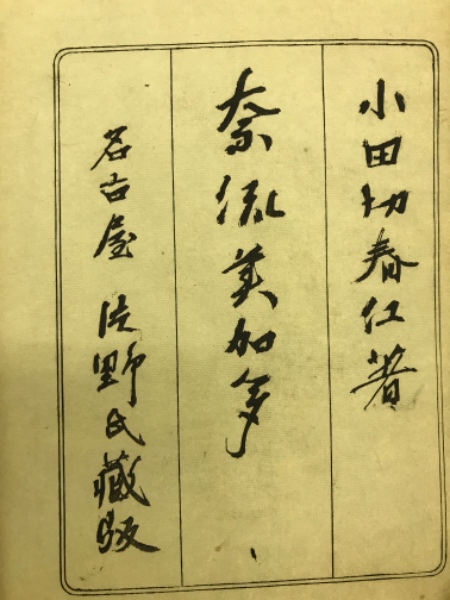 小田切春江著
奈流美加多
名古屋 片野氏藏版